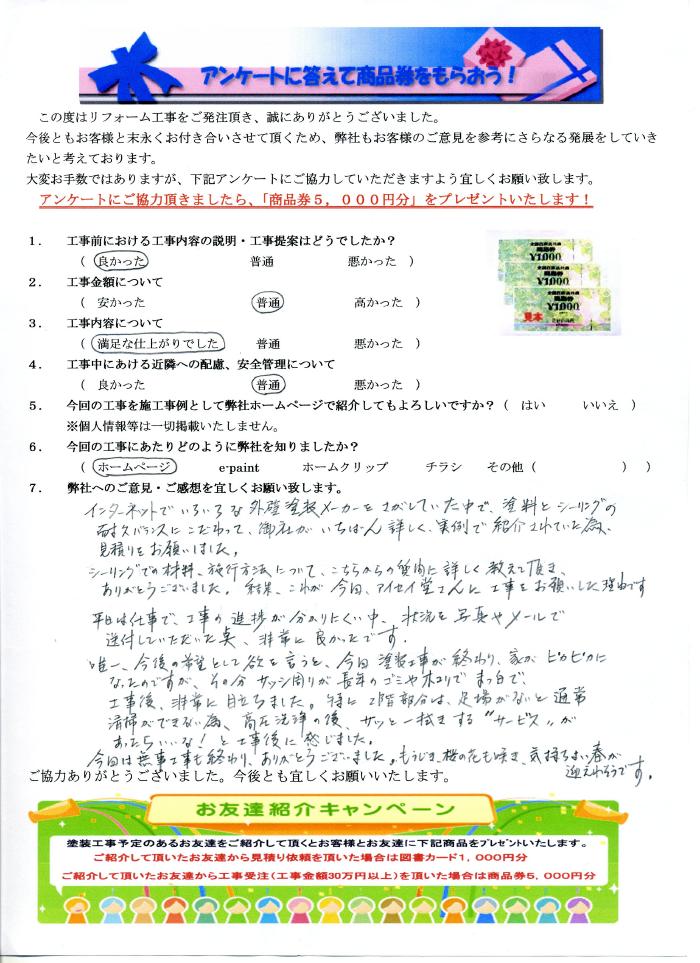 アンケートに答えて商品券をもらおう！
この度はリフォーム工事をご発注頂き、誠にありがとうございました。
今後ともお客様と末永くお付き合いさせて頂くため、弊社もお客様のご意見を参考にさらなる発展をしていき
たいと考えております。
大変お手数ではありますが、下記アンケートにご協力していただきますよう宜しくお願い致します。
アンケートにご協力頂きましたら、「商品券５，０００円分」をプレゼントいたします！
１． 工事前における工事内容の説明・工事提案はどうでしたか？
（ 良かった 普通 悪かった ）
２． 工事金額について
（ 安かった 普通 高かった ）
３． 工事内容について
（ 満足な仕上がりでした 普通 悪かった ）
４． 工事中にあける近隣への配慮、安全管理について
（ 良かった 普通 悪かった ）
５． 今回の工事を施工事例として弊社ホームページで紹介してもよろしいですか？（ はい いいえ ）
※個人情報等は一切掲載いたしません。
６． 今回の工事にあたりどのように弊社を知りましたか？
（ ホームページ e-paint ホームクリップ チラシ その他（ ） ）
７． 弊社へのご意見・ご感想を宜しくお願い致します。
商品券
¥1,000
商品券
¥1,000
商品券
¥1,000
見本
インターネットでいろいろな外壁塗装メーカーをさがしていた中で、塗料とシーリングの
耐久バランスにこだわって、御社がいちばん詳しく、実例で紹介されていた為、
見積りをお願いしました。
シーリングでの材料、施行方法について、こちらからの質問に詳しく教えて頂き、
ありがとうございました。結果、これが今回、アイセイ堂さんに工事をお願いした理由です
平日は仕事で、工事の進捗が分かりにくい中、状況を写真やメールで
送付していただいた点、非常に良かったです。
唯一、今後の希望として欲を言うと、今回塗装工事が終わり、家がピカピカに
なったのですが、その分サッシ周りが長年のゴミやホコリでまっ白で、
工事後、非常に目立ちました。特に2階部分は、足場がないと通常
清掃ができない為、高圧洗浄の後、サッと一拭きする“サービス”が
あったらいいな！と工事後に感じました。
今回は無事工事も終わり、ありがとうございました。もうじき、桜の花も咲き、気持ちよい春が
迎えれそうです。
ご協力ありがとうございました。今後とも宜しくお願いいたします。
お友達紹介キャンペーン
塗装工事予定のあるお友達をご紹介して頂くとお客様とお友達に下記商品をプレゼントいたします。
ご紹介して頂いたお友達から見積り依頼を頂いた場合は図書カード１，０００円分
ご紹介して頂いたお友達から工事受注（工事金額30万円以上）を頂いた場合は商品券５，０００円分